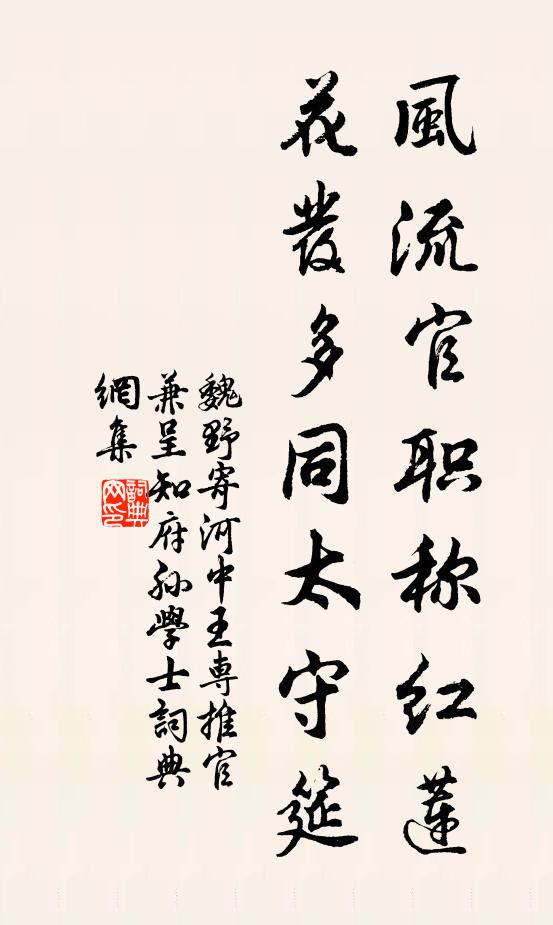 風流官职称红蓮
花發多同太守筵
魏野寄河中王専推官
兼呈知府孙學士詞典
網集
詞典
网印